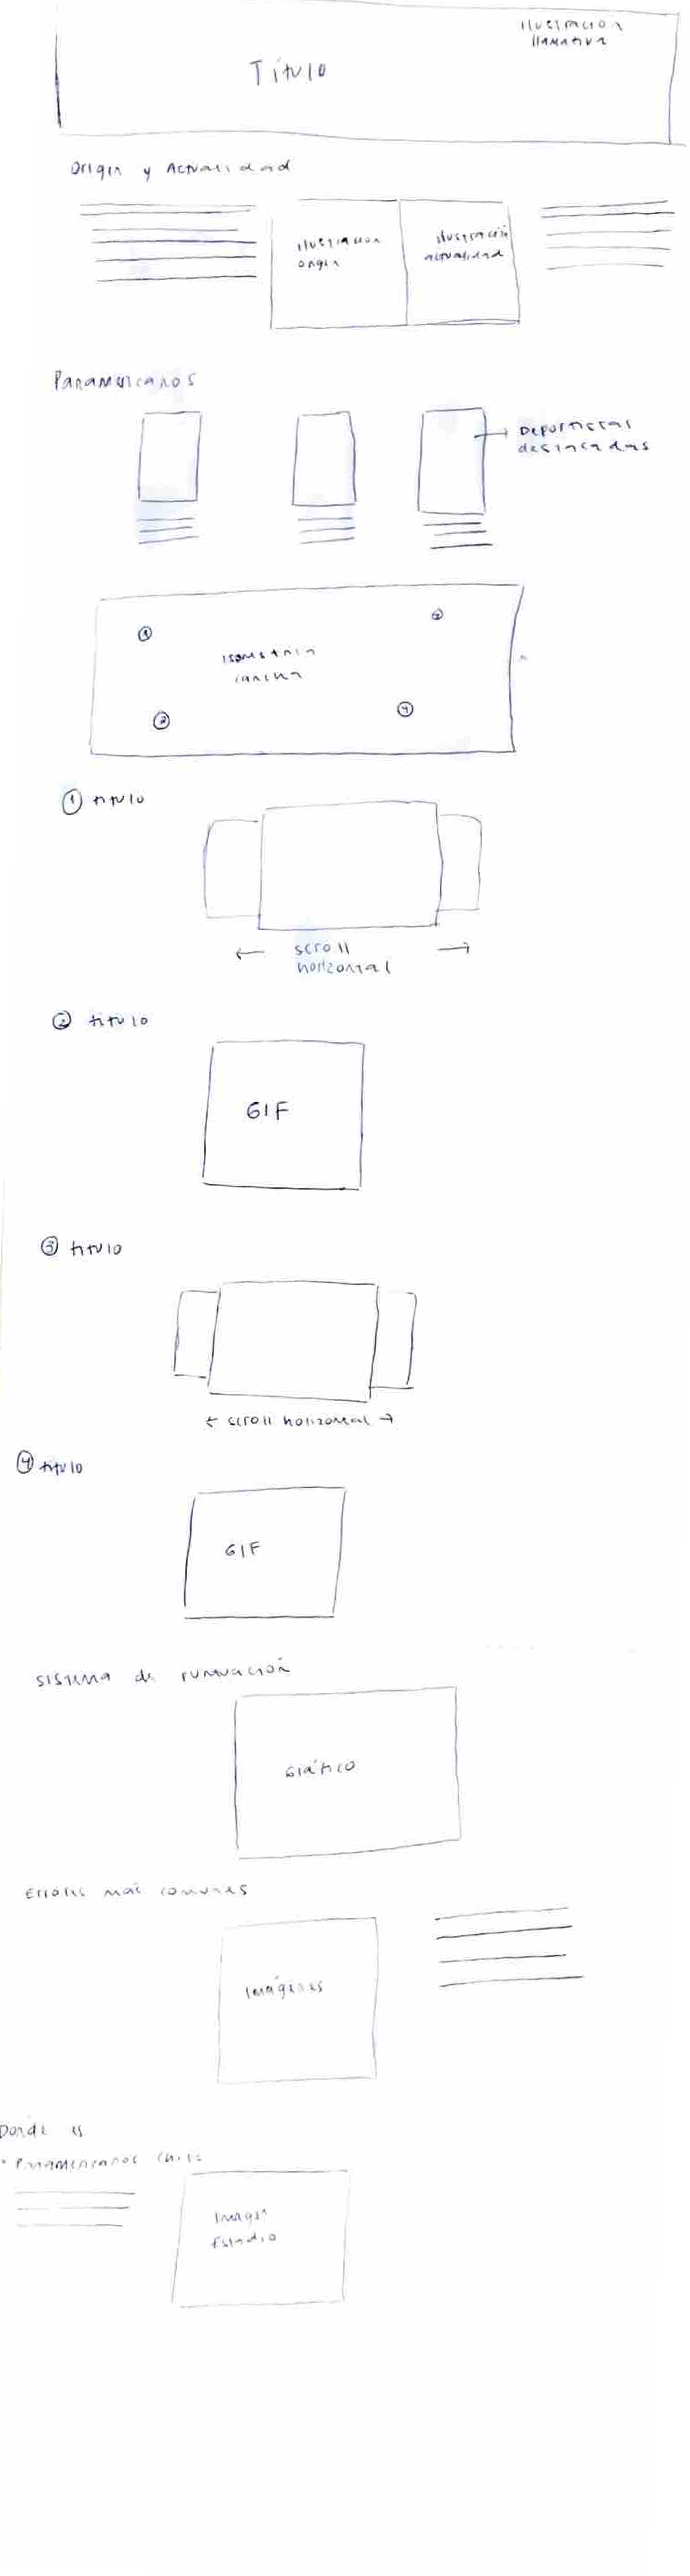 ilustracion
llamativa
Título
Origen y Actualidad
ilustracion
origen
ilustración
actualidad
Panamericanos
Deportistas
destacadas
① ③
isometria
cancha
② ④
① titulo
← scroll →
horizontal
② titulo
GIF
③ titulo
← scroll horizontal →
④ titulo
GIF
sistema de puntuación
Gráfico
Errores más comunes
Imágenes
Donde es
• Panamericanos Chile
Imagen
Estadio